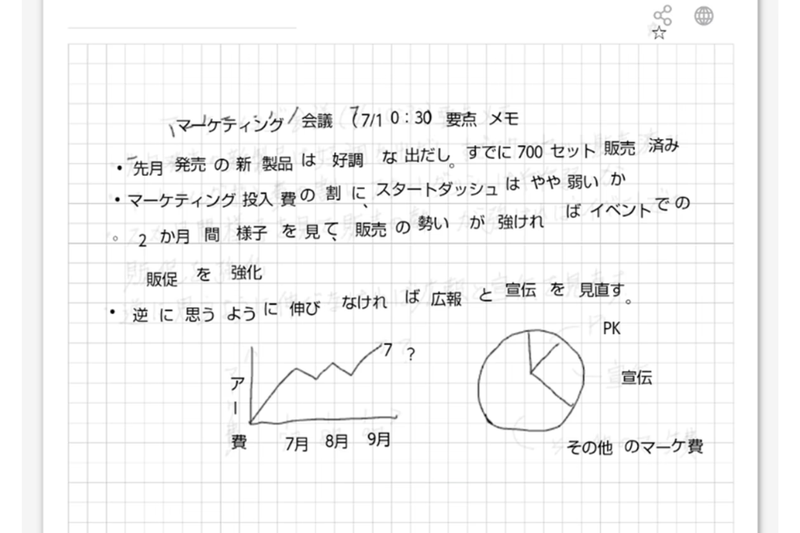 マーケティング/会議 (7/1 0:30) 要点 メモ
・先月 発売 の 新 製品 は 好調 な 出だし。すでに 700 セット 販売 済み
・マーケティング 投入 費の 割 に、スタートダッシュ は やや 弱い か
。2 か月 間 様子 を 見て、販売 の 勢い が 強けれ ば イベントでの
販促 を 強化
・逆 に 思う ように 伸び なけれ ば 広報 と 宣伝 を 見直す。
7 ?
アー費
7月 8月 9月
PK
宣伝
その他 のマーケ費